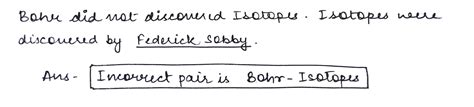 Bohr did not discovered Isotopes. Isotopes were
discovered by Federick Sobby.
Ans- Incorrect pair is Bohr-Isotopes